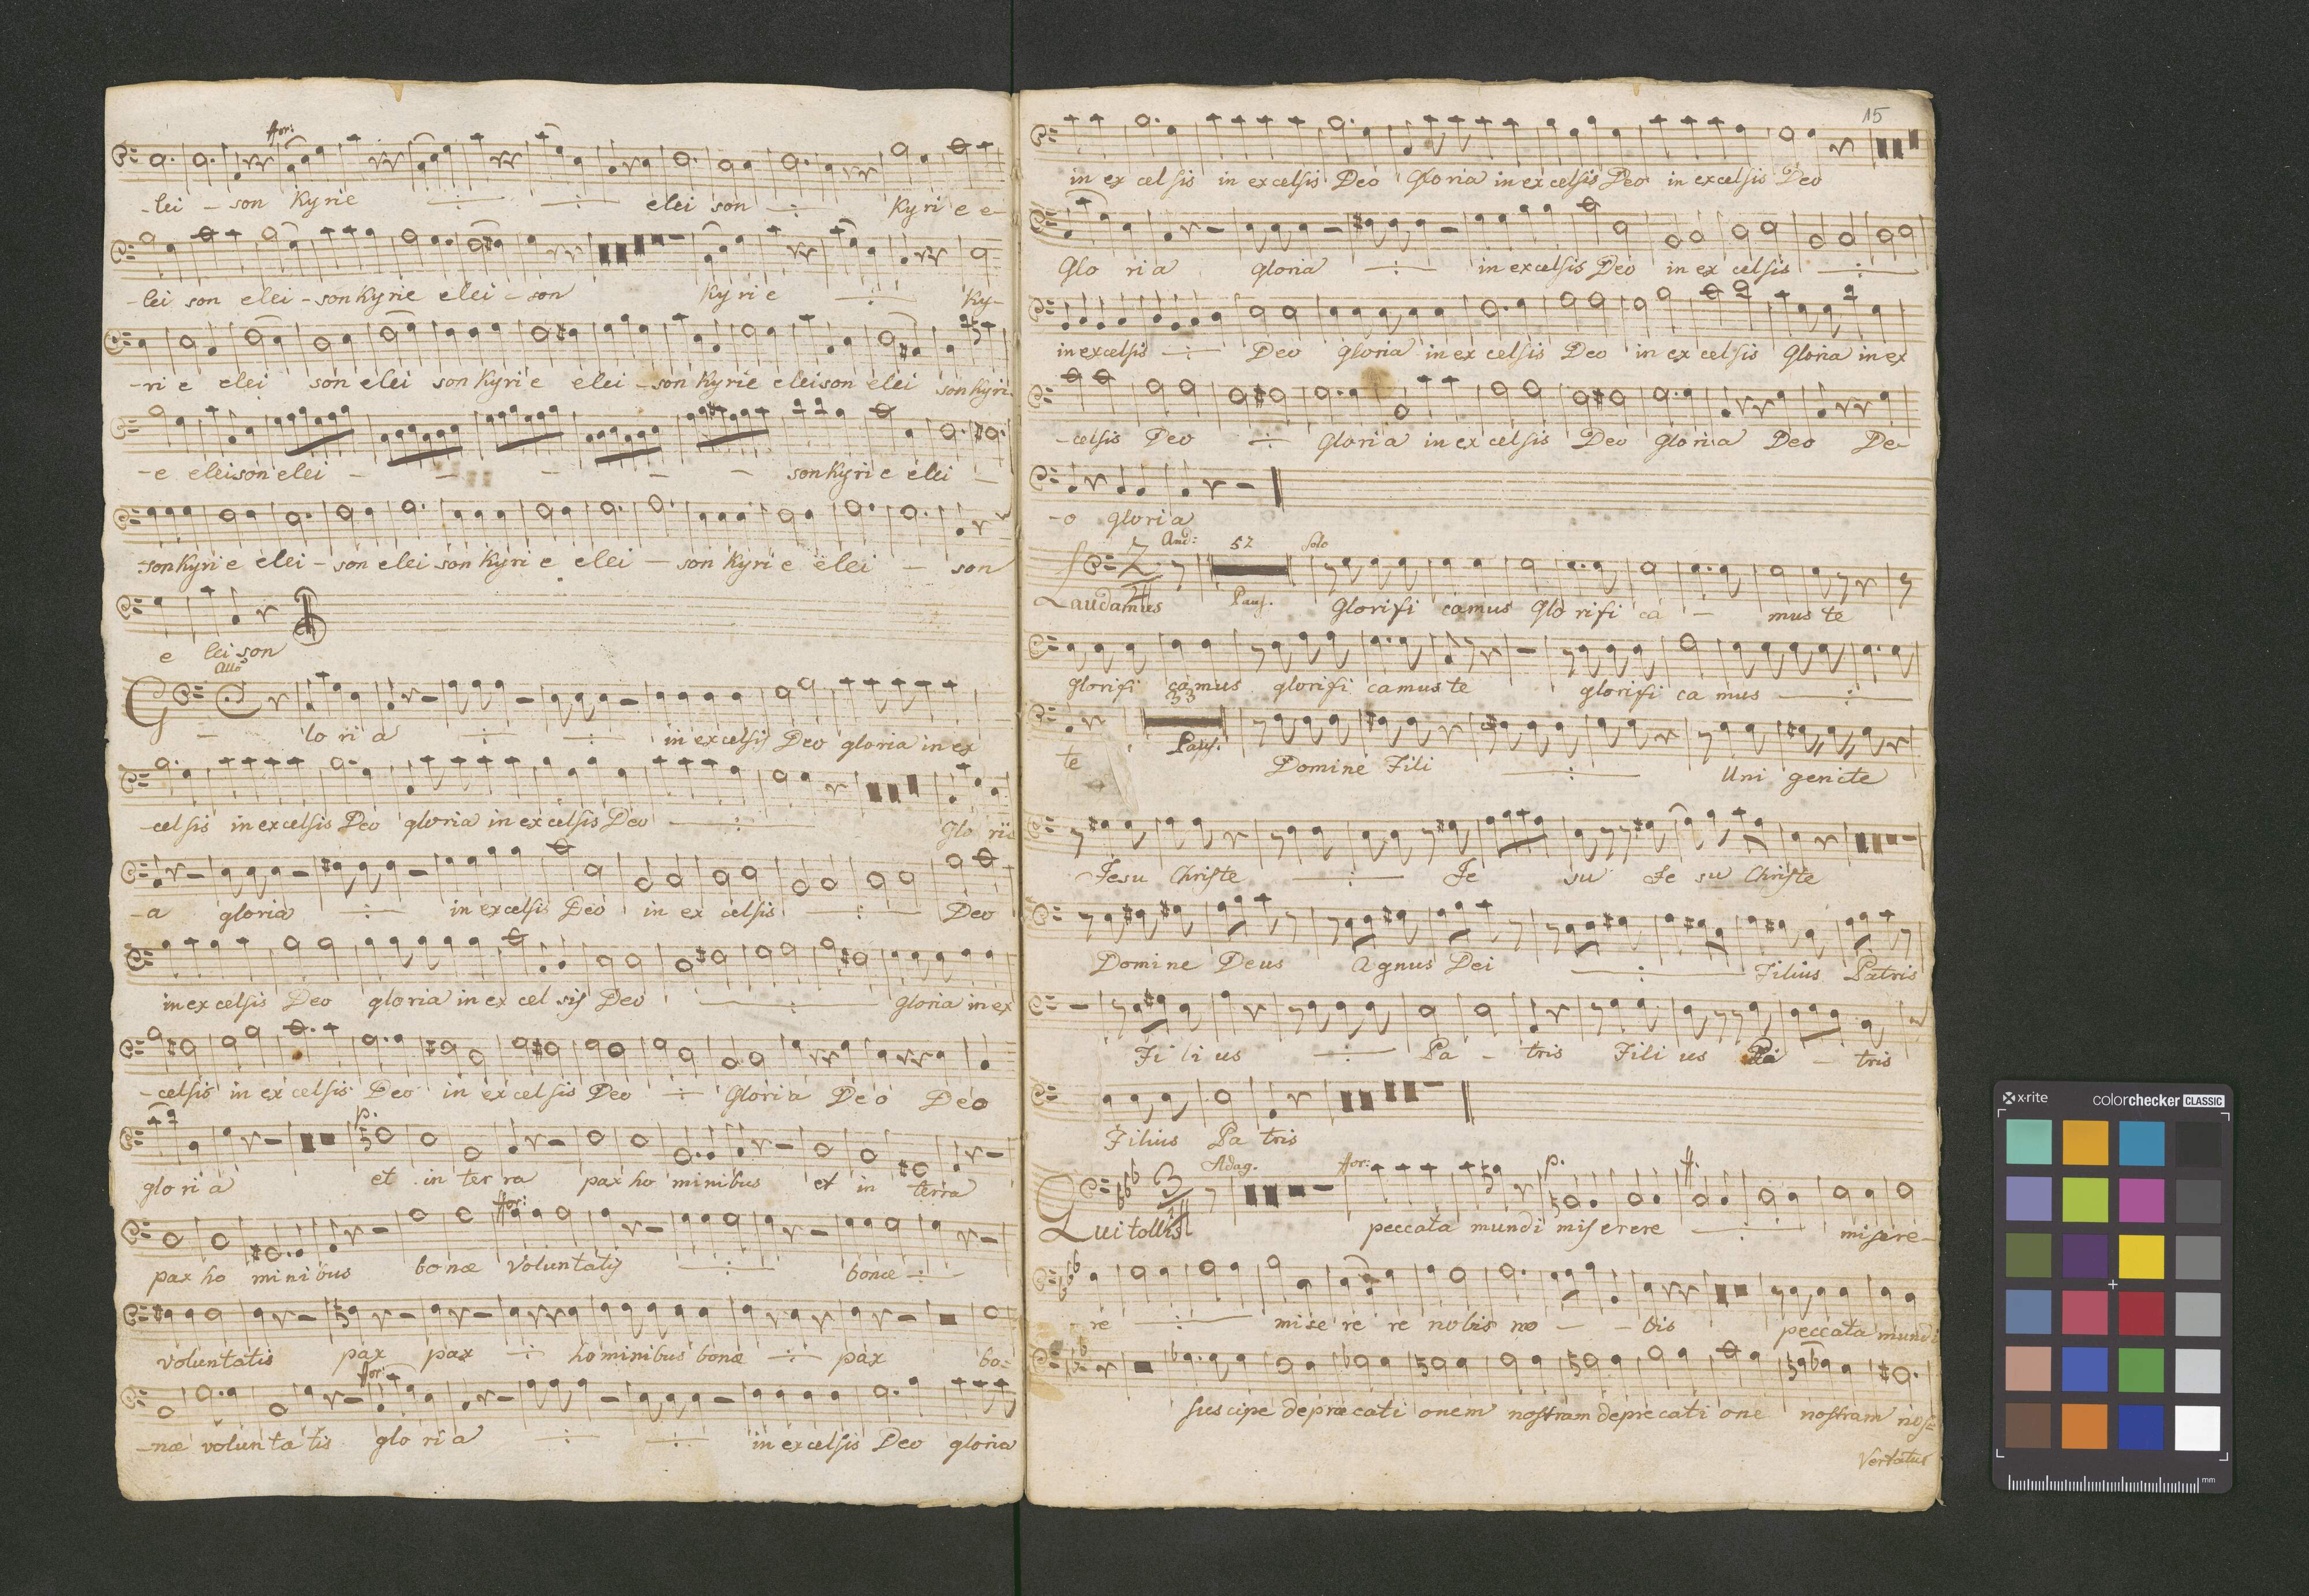 for:
-lei - son Kyrie elei son Kyri e e-
-lei son elei - son Kyrie elei - son Kyrie Ky-
-ri e elei son elei son Kyrie elei - son Kyrie eleison elei son Kyri
-e eleison elei - - - - - son Kyrie elei -
son Kyrie elei - son elei son Kyrie elei - son Kyrie elei - son
e leison
Allo
Gloria in excelsis Deo gloria in ex
-celsis in excelsis Deo gloria in excelsis Deo Glo ri
-a gloria in excelsis Deo in ex celsis Deo
in ex celsis Deo gloria in ex cel sis Deo gloria in ex
-celsis in ex celsis Deo in excelsis Deo Gloria Deo Deo
p.
gloria et in terra pax ho minibus et in terra
for:
pax ho minibus bonæ voluntatis bonæ
voluntatis pax pax hominibus bonæ pax bo=
for:
-næ voluntatis gloria in excelsis Deo gloria
15
in ex celsis in excelsis Deo Gloria in excelsis Deo in excelsis Deo
Glo ria gloria in excelsis Deo in ex celsis
in excelsis Deo gloria in ex celsis Deo in ex celsis Gloria in ex
-celsis Deo gloria in ex celsis Deo gloria Deo De-
-o gloria
And: 52 Solo
2
Laudamus Paus. Glorifi camus Glo rifi ca - mus te
glorifi camus glorifi camus te glorifi ca mus
33
te Paus. Domine Fili Uni genite
Jesu Christe Je su Je su Christe
Domine Deus Agnus Dei Filius Patris
Fi li us Pa - tris Fili us Pa - tris
Filius Pa tris
3 Adag. for: p. f.
Qui tollis peccata mundi miserere misere-
re mise re re nobis no - - bis peccata mundi
suscipe depræcati onem nostram deprecati one nostram nos=
Vertatur
x-rite colorchecker CLASSIC
mm